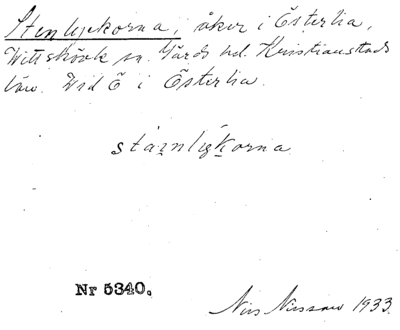 Stenlyckorna, åker i Österlia,
Vittskövle sn. Gärds hd. Kristianstads
län. Vid Ö i Österlia.
stainligkorna
Nr 5340.
Nils Nilsson 1933.